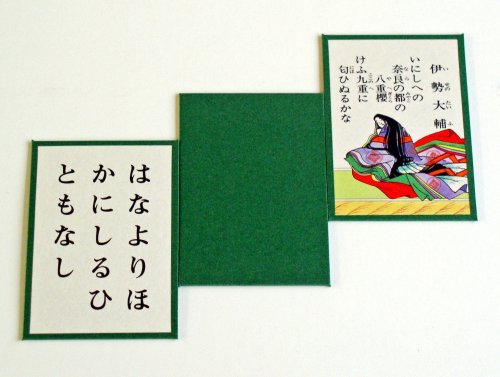 伊勢大輔
いにしへの
奈良の都の
八重櫻
けふ九重に
匂ひぬるかな
はなよりほ
かにしるひ
ともなし